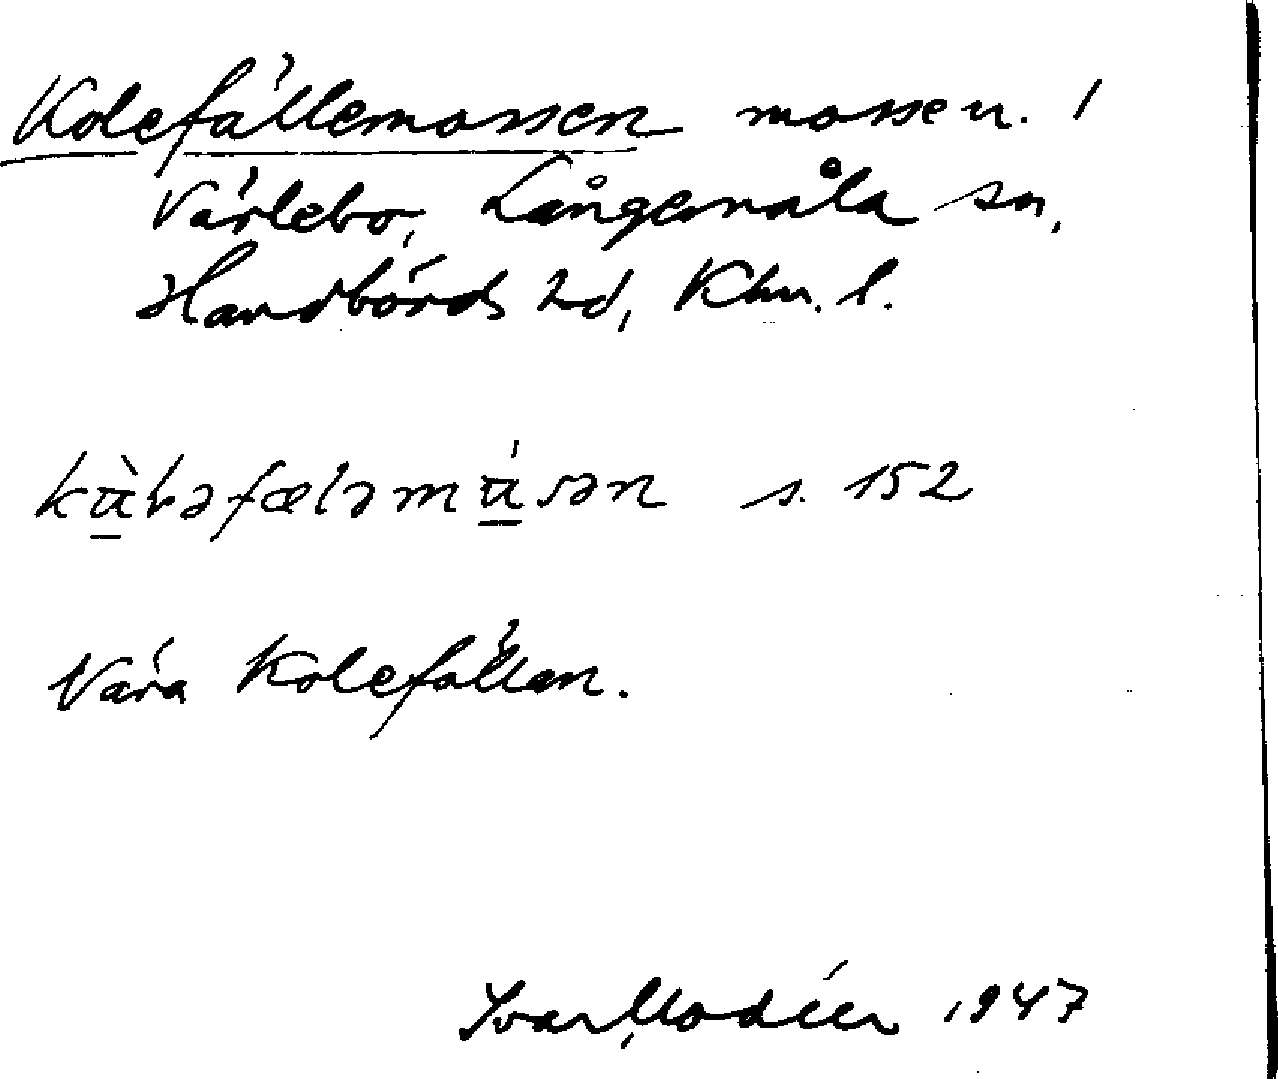 Kolefällemossen mosse u. /
Värlebo, Långemåla sn,
Handbörds hd, Klm. l.
kàləfæləmásən s. 152
Nära Kolefällan.
Ivar Modéer 1947